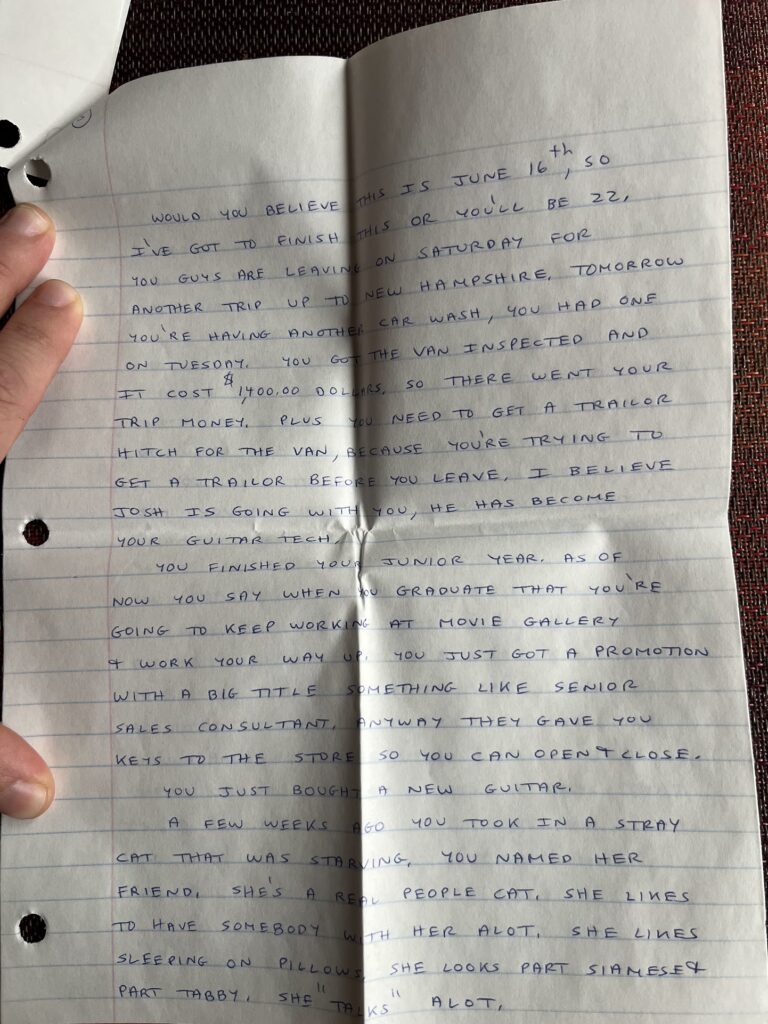 WOULD YOU BELIEVE THIS IS JUNE 16th, SO
I'VE GOT TO FINISH THIS OR YOU'LL BE 22.
YOU GUYS ARE LEAVING ON SATURDAY FOR
ANOTHER TRIP UP TO NEW HAMPSHIRE. TOMORROW
YOU'RE HAVING ANOTHER CAR WASH, YOU HAD ONE
ON TUESDAY. YOU GOT THE VAN INSPECTED AND
IT COST $1,400.00 DOLLARS. SO THERE WENT YOUR
TRIP MONEY. PLUS YOU NEED TO GET A TRAILOR
HITCH FOR THE VAN, BECAUSE YOU'RE TRYING TO
GET A TRAILOR BEFORE YOU LEAVE. I BELIEVE
JOSH IS GOING WITH YOU, HE HAS BECOME
YOUR GUITAR TECH.
YOU FINISHED YOUR JUNIOR YEAR. AS OF
NOW YOU SAY WHEN YOU GRADUATE THAT YOU'RE
GOING TO KEEP WORKING AT MOVIE GALLERY
& WORK YOUR WAY UP. YOU JUST GOT A PROMOTION
WITH A BIG TITLE SOMETHING LIKE SENIOR
SALES CONSULTANT. ANYWAY THEY GAVE YOU
KEYS TO THE STORE SO YOU CAN OPEN & CLOSE.
YOU JUST BOUGHT A NEW GUITAR.
A FEW WEEKS AGO YOU TOOK IN A STRAY
CAT THAT WAS STARVING. YOU NAMED HER
FRIEND. SHE'S A REAL PEOPLE CAT. SHE LIKES
TO HAVE SOMEBODY WITH HER ALOT. SHE LIKES
SLEEPING ON PILLOWS. SHE LOOKS PART SIAMESE &
PART TABBY. SHE "TALKS" ALOT.